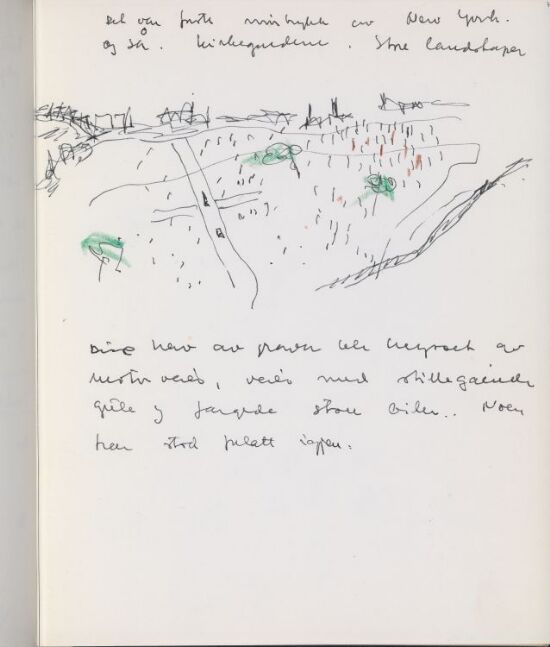 det var første inntrykk av New York.
og så. Kirkegårdene. Store landskaper
Disse hav av graver ble krysset av
motorveier, veier med stillegående
gule og fargede store biler.. Noen
trær stod igjen.